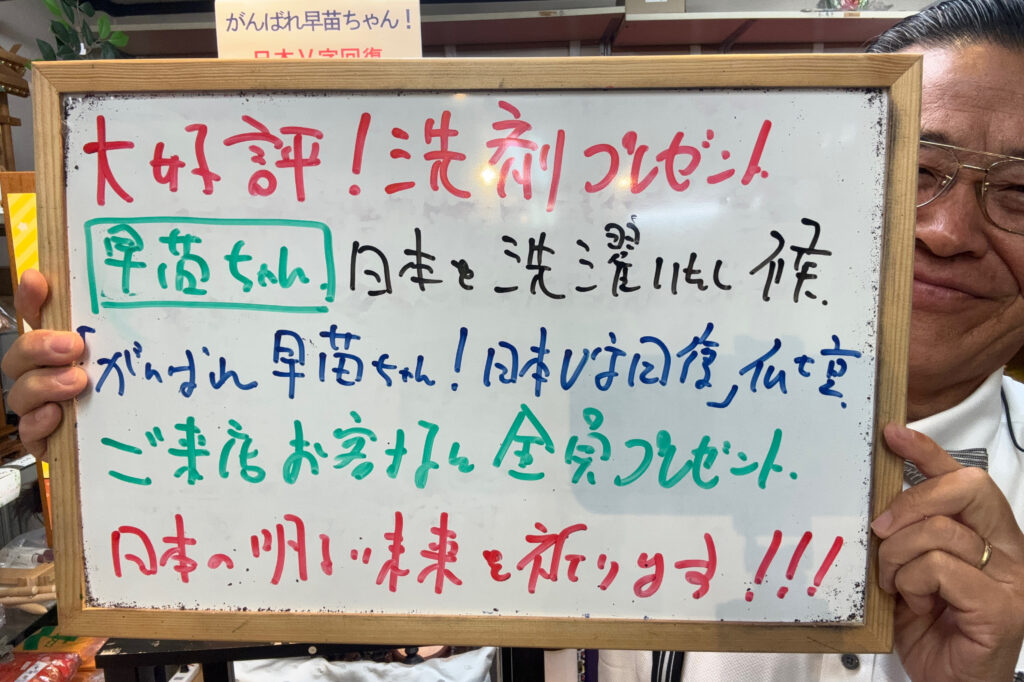 がんばれ早苗ちゃん！
日本V字回復
大好評！洗剤プレゼント
早苗ちゃん 日本を洗濯いたし候
「がんばれ早苗ちゃん！日本V字回復」仏壇
ご来店お客さん全員プレゼント
日本の明るい未来を祈ります!!!